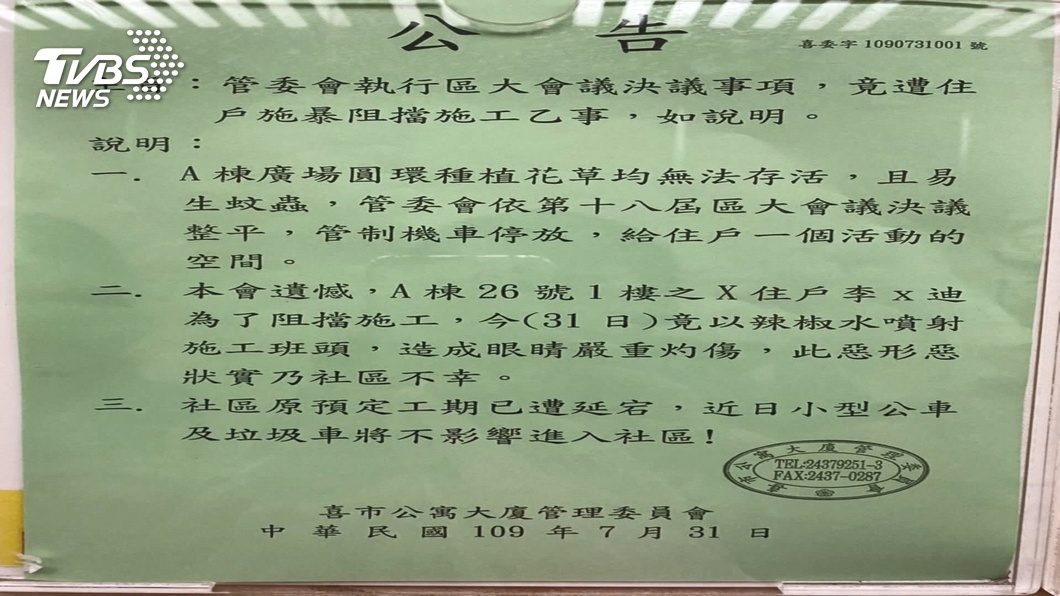 公告
喜委字 1090731001 號
TVBS
NEWS
：管委會執行區大會議決議事項，竟遭住
戶施暴阻擋施工乙事，如說明。
說明：
一. A 棟廣場圓環種植花草均無法存活，且易
生蚊蟲，管委會依第十八屆區大會議決議
整平，管制機車停放，給住戶一個活動的
空間。
二. 本會遺憾，A 棟 26 號 1 樓之 X 住戶李 x 迪
為了阻擋施工，今(31 日)竟以辣椒水噴射
施工班頭，造成眼睛嚴重灼傷，此惡形惡
狀實乃社區不幸。
三. 社區原預定工期已遭延宕，近日小型公車
及垃圾車將不影響進入社區！
公寓大廈管理委員會
TEL:24379251-3
FAX:2437-0287
喜市公寓大廈管理委員會
中華民國 109 年 7 月 31 日